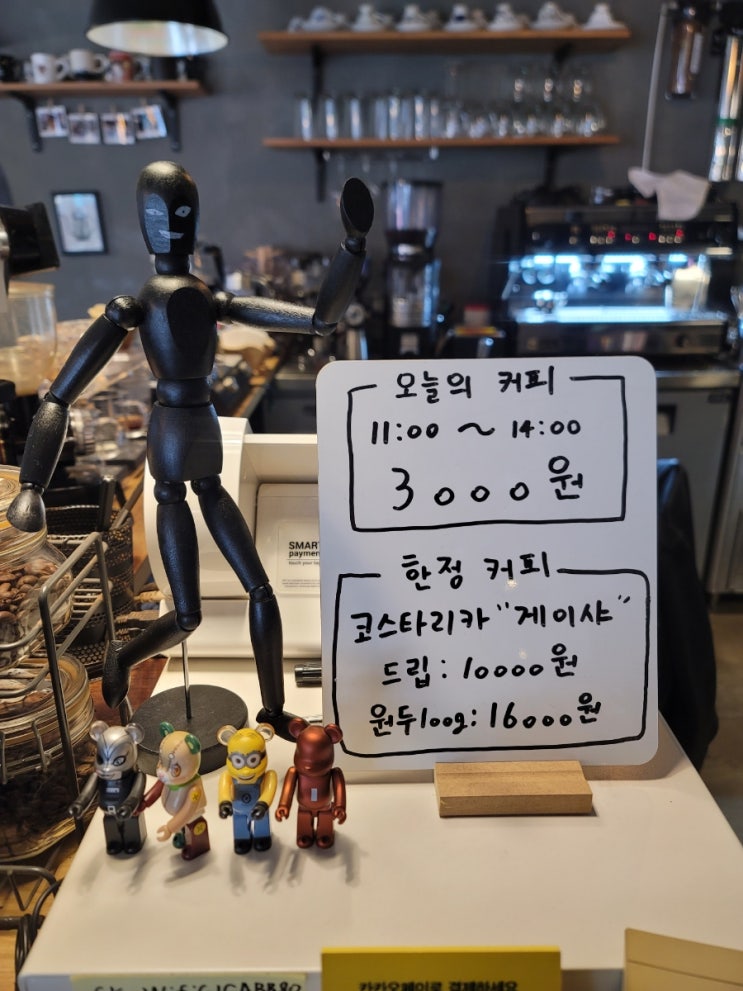 오늘의 커피
11:00 ~ 14:00
3000원
한정 커피
코스타리카 "게이샤"
드립 : 10000원
원두100g: 16000원
SMART
payment
카카오페이로 결제하세요